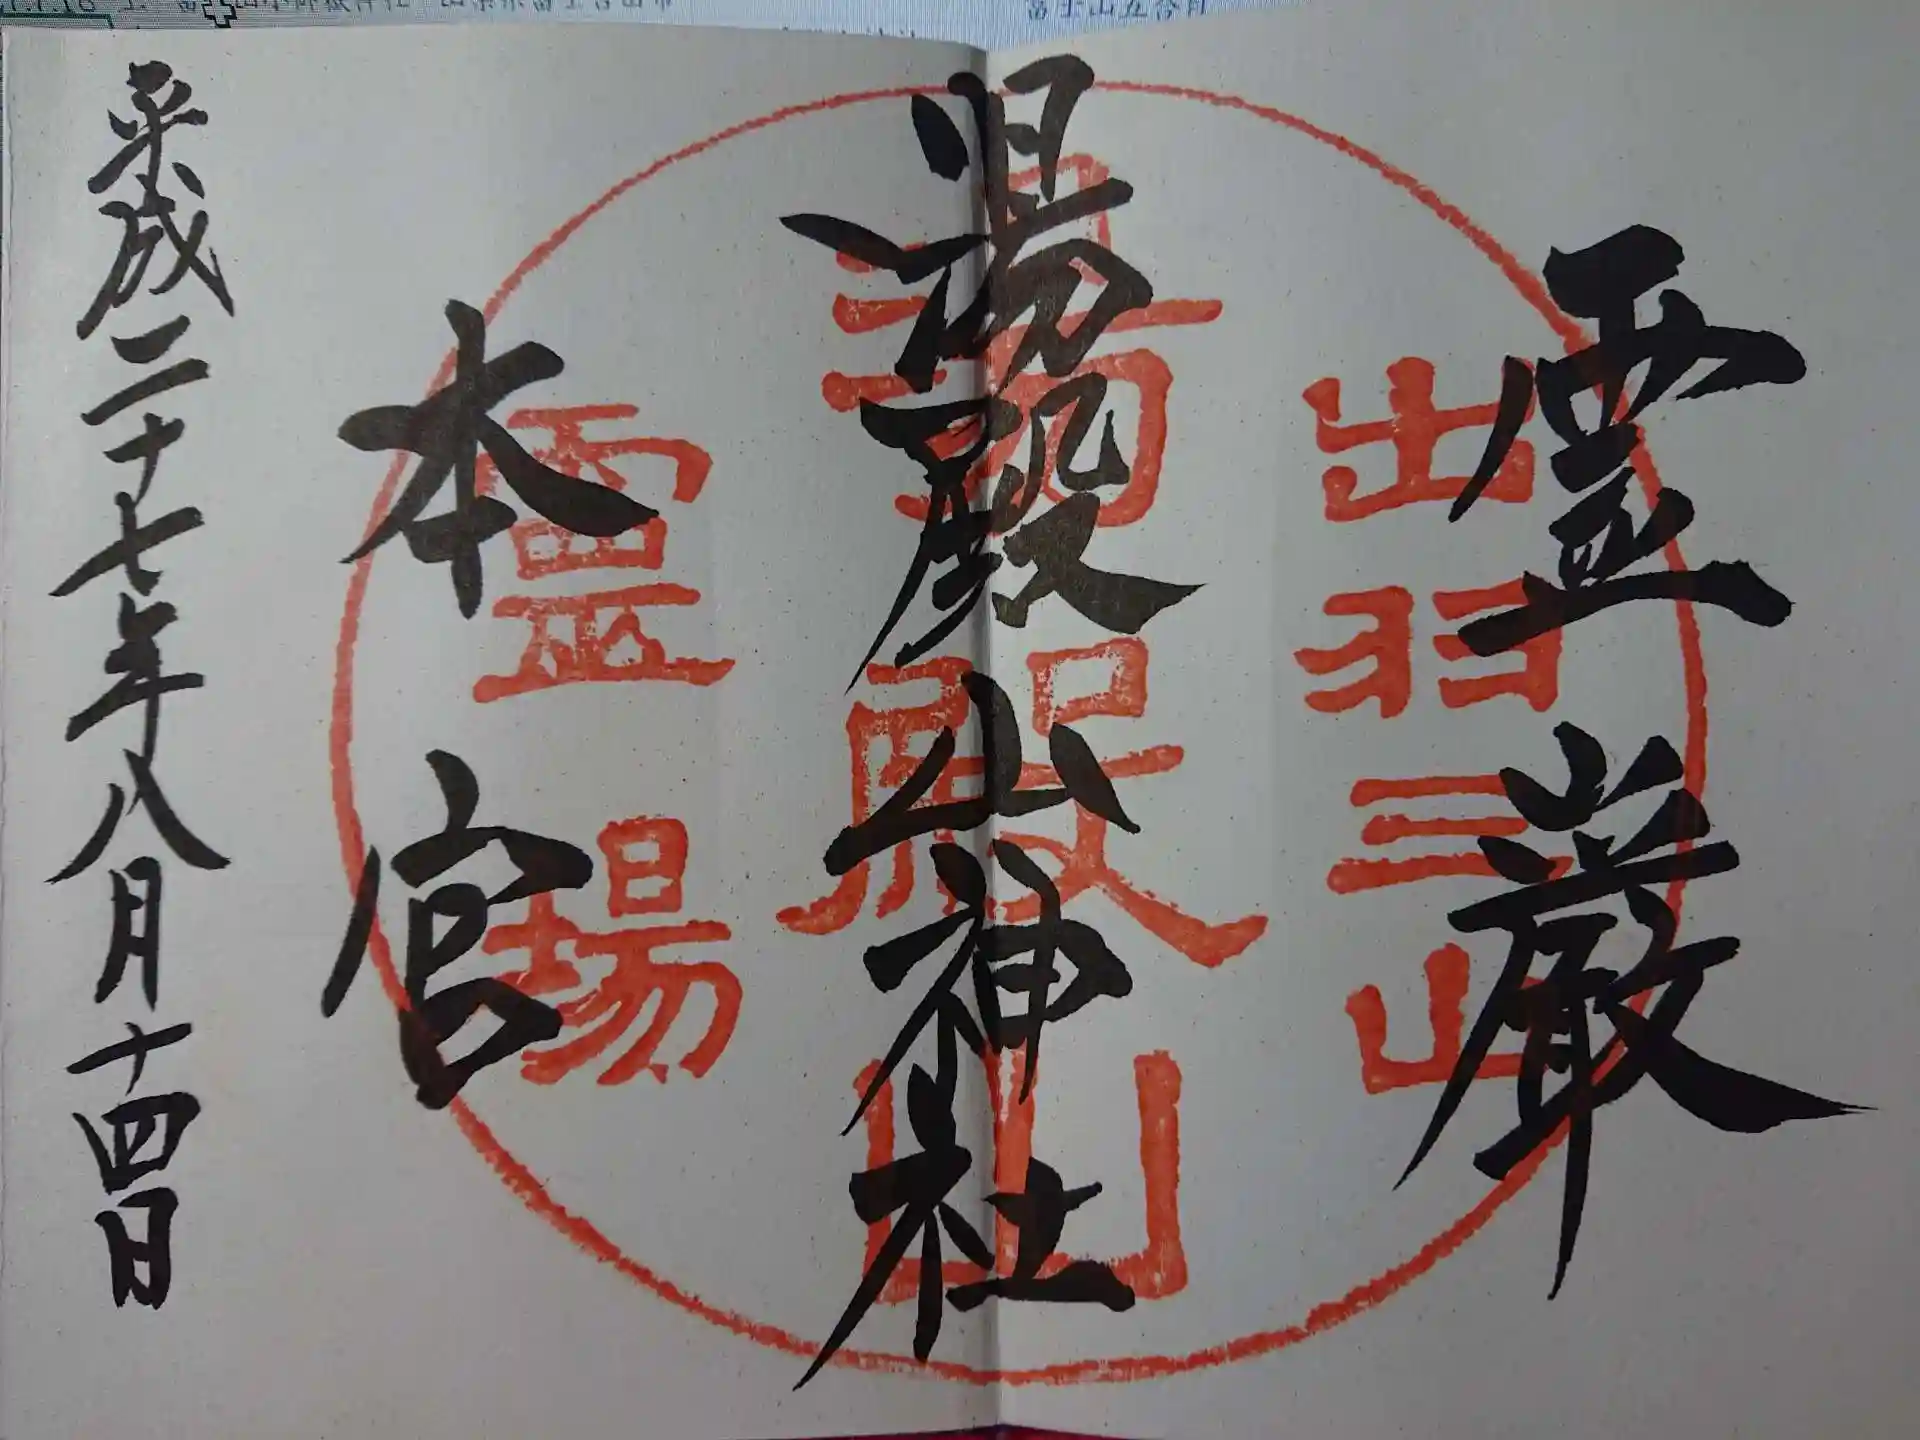 霊巌
湯殿山神社
本宮
平成二十七年八月十四日
出羽三山
湯殿山
霊場
富士山五合目